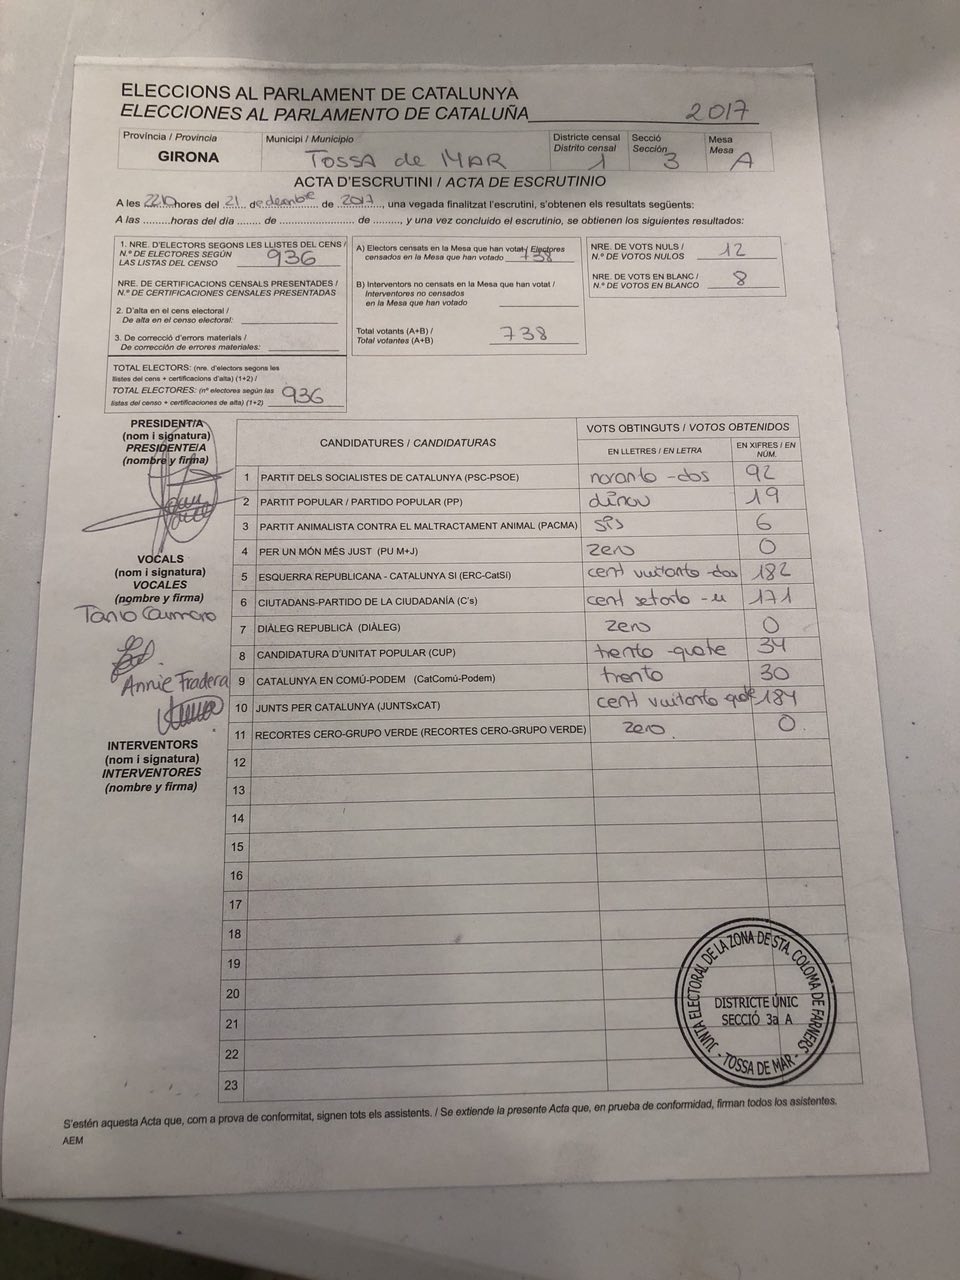 ELECCIONS AL PARLAMENT DE CATALUNYA
ELECCIONES AL PARLAMENTO DE CATALUÑA 2017
Província / Provincia
GIRONA
Municipi / Municipio
TOSSA de MAR
Districte censal
Distrito censal 1
Secció
Sección 3
Mesa
Mesa A
ACTA D'ESCRUTINI / ACTA DE ESCRUTINIO
A les 2210 hores del 21 de desembre de 2017, una vegada finalitzat l'escrutini, s'obtenen els resultats següents:
A las .........horas del día ....... de ........................... de ........, y una vez concluido el escrutinio, se obtienen los siguientes resultados:
1. NRE. D'ELECTORS SEGONS LES LLISTES DEL CENS /
N.º DE ELECTORES SEGÚN
LAS LISTAS DEL CENSO 936
NRE. DE CERTIFICACIONS CENSALS PRESENTADES /
N.º DE CERTIFICACIONES CENSALES PRESENTADAS
2. D'alta en el cens electoral /
De alta en el censo electoral:
3. De correcció d'errors materials /
De corrección de errores materiales:
TOTAL ELECTORS: (nre. d'electors segons les
llistes del cens + certificacions d'alta) (1+2) /
TOTAL ELECTORES: (nº electores según las
listas del censo + certificaciones de alta) (1+2) 936
A) Electors censats en la Mesa que han votat / Electores
censados en la Mesa que han votado 738
B) Interventors no censats en la Mesa que han votat /
Interventores no censados
en la Mesa que han votado
Total votants (A+B) /
Total votantes (A+B) 738
NRE. DE VOTS NULS /
N.º DE VOTOS NULOS 12
NRE. DE VOTS EN BLANC /
N.º DE VOTOS EN BLANCO 8
PRESIDENT/A
(nom i signatura)
PRESIDENTE/A
(nombre y firma)
VOCALS
(nom i signatura)
VOCALES
(nombre y firma)
Annie Fradera
INTERVENTORS
(nom i signatura)
INTERVENTORES
(nombre y firma)
CANDIDATURES / CANDIDATURAS
VOTS OBTINGUTS / VOTOS OBTENIDOS
EN LLETRES / EN LETRA
EN XIFRES / EN NÚM.
1 PARTIT DELS SOCIALISTES DE CATALUNYA (PSC-PSOE) noranta-dos 92
2 PARTIT POPULAR / PARTIDO POPULAR (PP) dinou 19
3 PARTIT ANIMALISTA CONTRA EL MALTRACTAMENT ANIMAL (PACMA) sis 6
4 PER UN MÓN MÉS JUST (PU M+J) zero 0
5 ESQUERRA REPUBLICANA - CATALUNYA SI (ERC-CatSí) cent vuitanta-dos 182
6 CIUTADANS-PARTIDO DE LA CIUDADANÍA (C's) cent setanta-u 171
7 DIÀLEG REPUBLICÀ (DIÀLEG) zero 0
8 CANDIDATURA D'UNITAT POPULAR (CUP) trenta-quatre 34
9 CATALUNYA EN COMÚ-PODEM (CatComú-Podem) trenta 30
10 JUNTS PER CATALUNYA (JUNTSxCAT) cent vuitanta quatre 184
11 RECORTES CERO-GRUPO VERDE (RECORTES CERO-GRUPO VERDE) zero. 0.
12
13
14
15
16
17
18
19
20
21
22
23
JUNTA ELECTORAL DE LA ZONA DE STA. COLOMA DE FARNERS
DISTRICTE ÚNIC
SECCIÓ 3a A
- TOSSA DE MAR -
S'estén aquesta Acta que, com a prova de conformitat, signen tots els assistents. / Se extiende la presente Acta que, en prueba de conformidad, firman todos los asistentes.
AEM